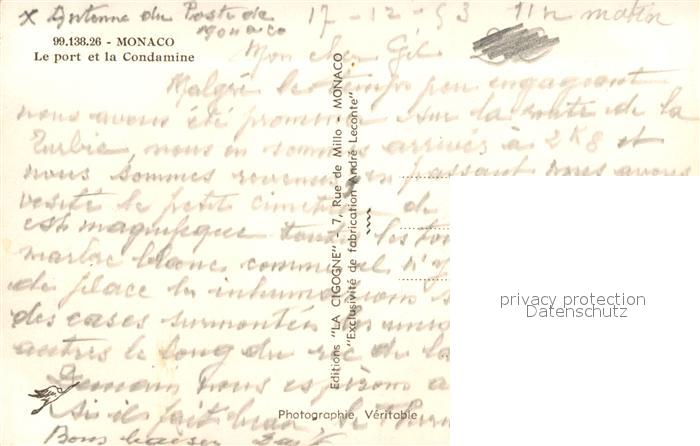 x Antenne du Poste de Monaco
17-12-53 11h matin
99.138.26 - MONACO
Le port et la Condamine
Mon cher Gil
Malgré le temps peu engageant
nous avons été promener sur la route de la
Turbie, nous en sommes arrivés à 2 K 8 et
nous sommes revenus, en passant nous avons
visité le petit cimetière de
est magnifique toutes les
marbre blanc, comme il n'y
de place les inhumations
des cases surmontées les unes
autres le long du roc de la
Demain nous espérons a
si il fait beau, le
Bons baisers
Editions "LA CIGOGNE" - 7, Rue de Millo - MONACO
"Exclusivité de fabrication André Leconte"
Photographie Véritable
privacy protection
Datenschutz